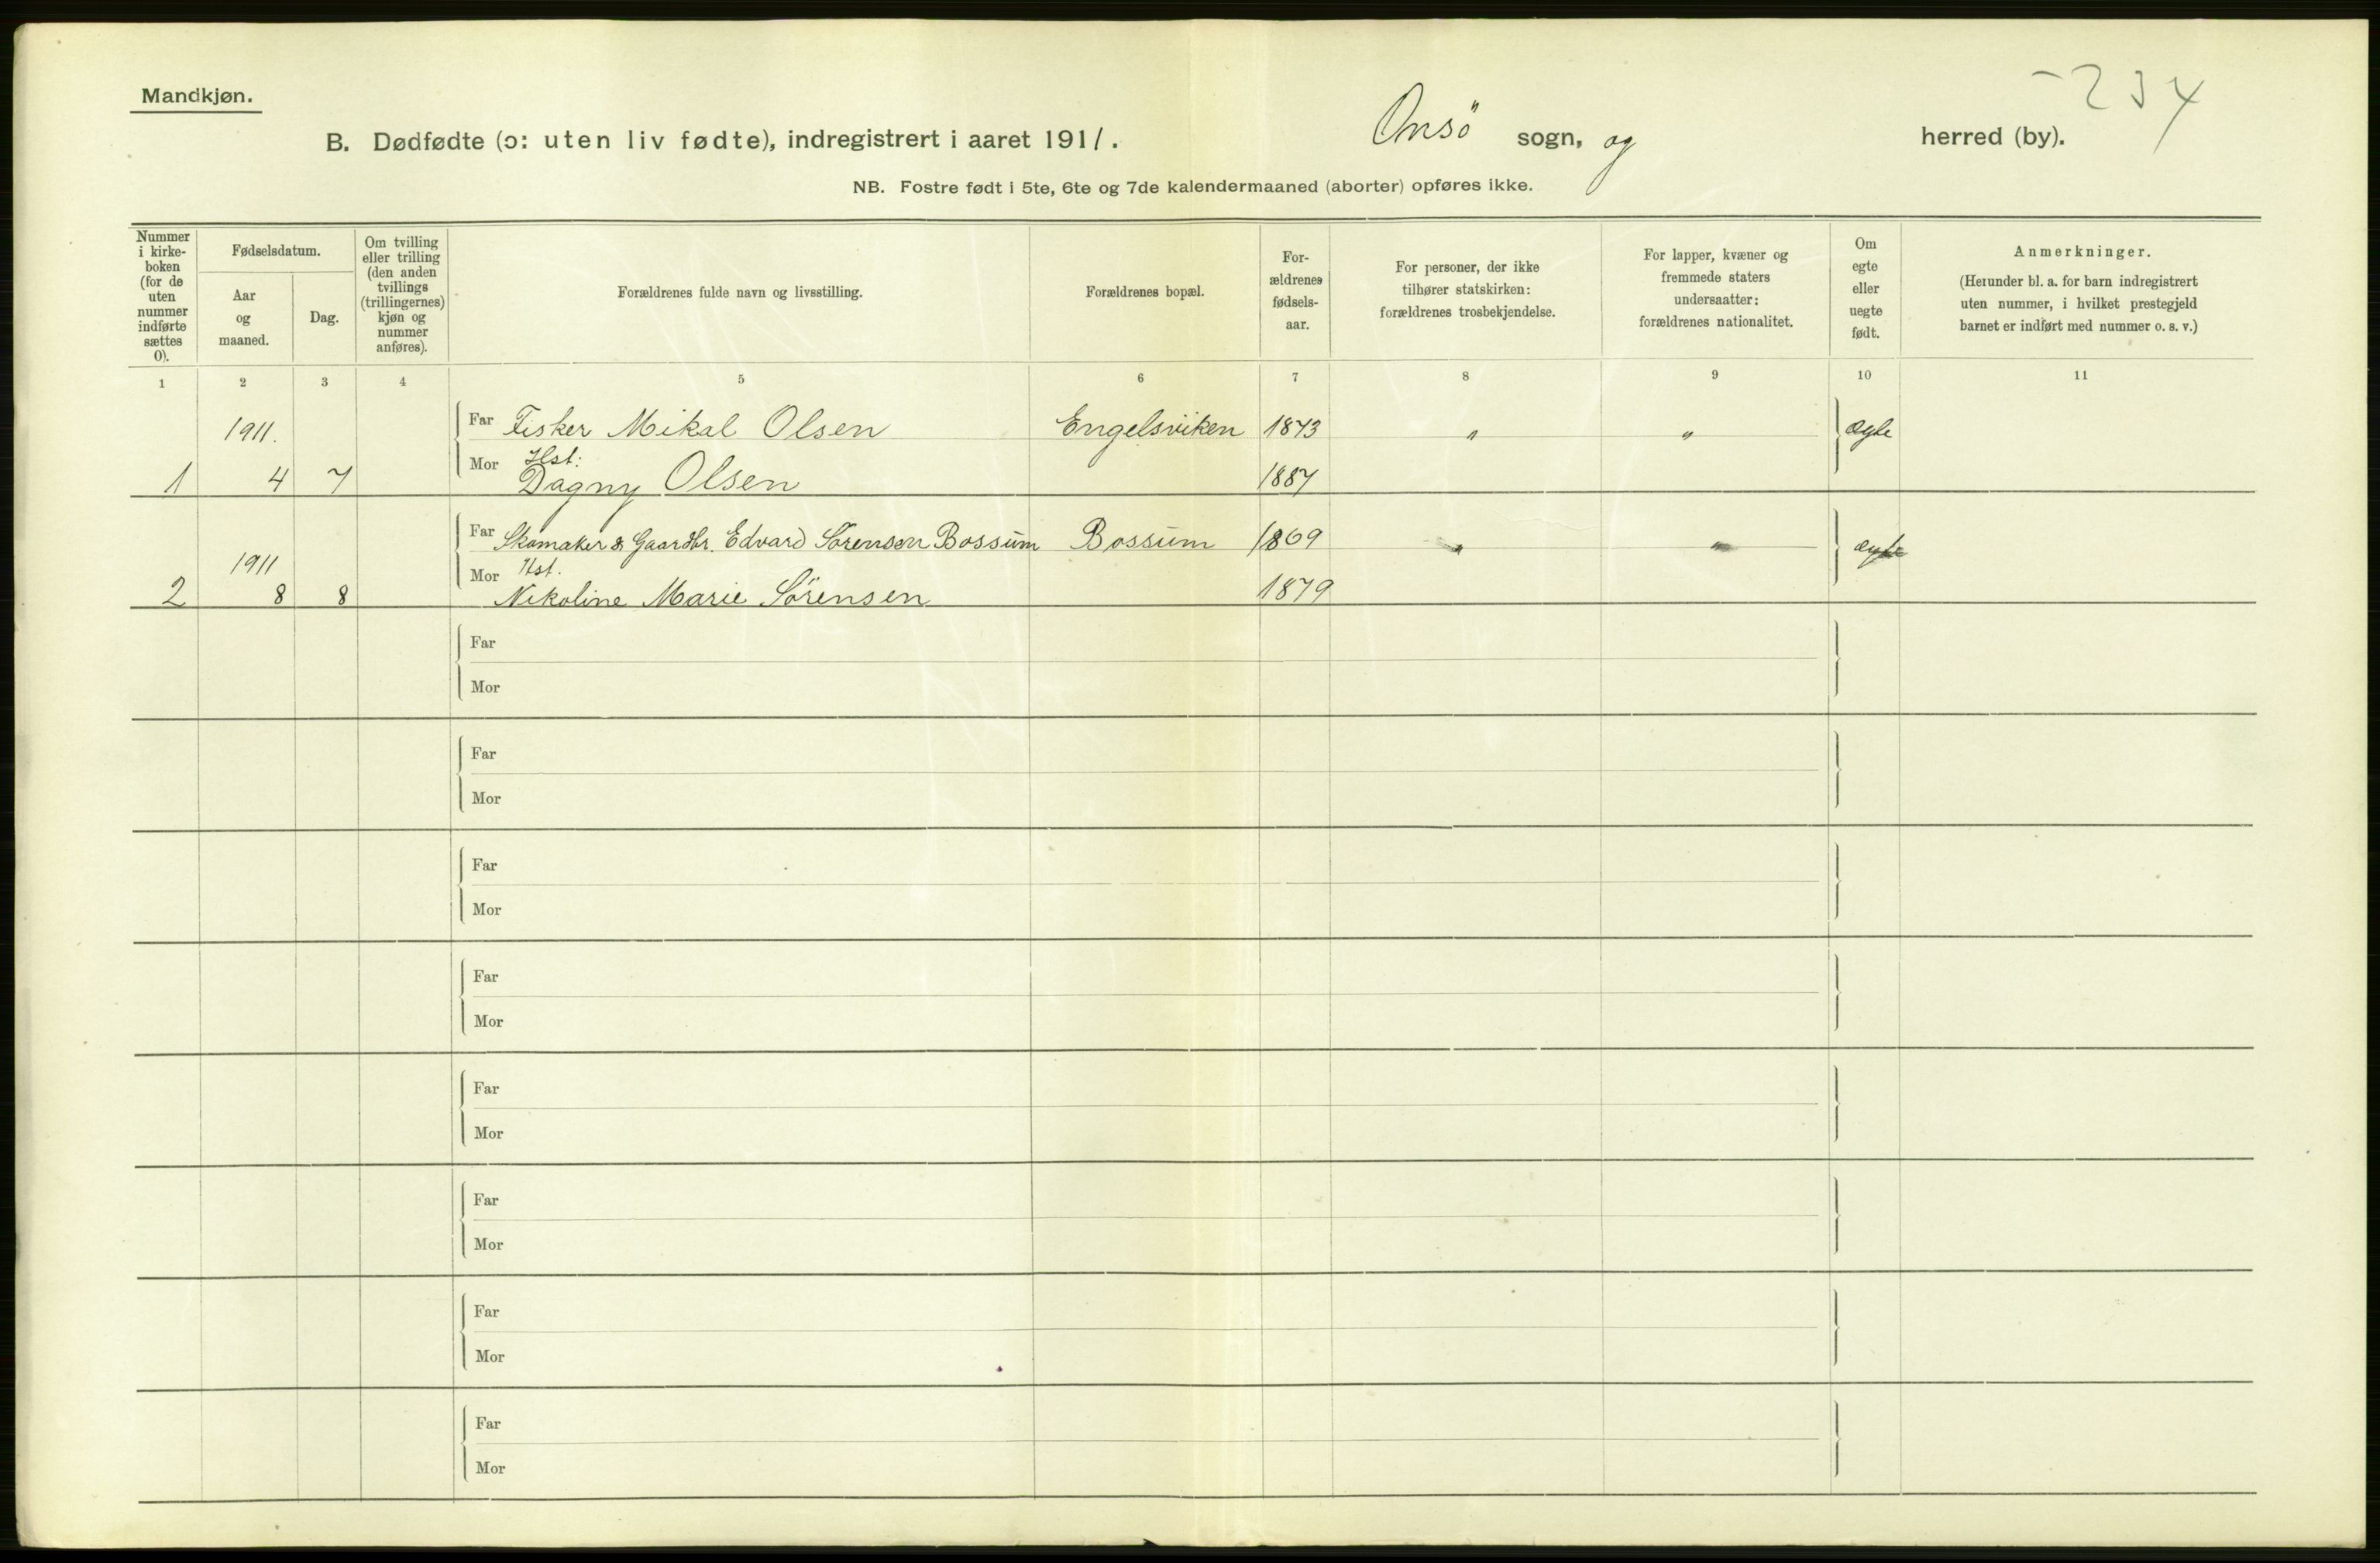 Mandkjøn.
-234
B. Dødfødte (ɔ: uten liv fødte), indregistrert i aaret 1911. Onsö sogn, og herred (by).
NB. Fostre født i 5te, 6te og 7de kalendermaaned (aborter) opføres ikke.
Nummer
i kirke-
boken
(for de
uten
nummer
indførte
sættes
0).
Fødselsdatum.
Aar
og
maaned.
Dag.
Om tvilling
eller trilling
(den anden
tvillings
(trillingernes)
kjøn og
nummer
anføres).
Forældrenes fulde navn og livsstilling.
Forældrenes bopæl.
For-
ældrenes
fødsels-
aar.
For personer, der ikke
tilhører statskirken:
forældrenes trosbekjendelse.
For lapper, kvæner og
fremmede staters
undersaatter:
forældrenes nationalitet.
Om
egte
eller
uegte
født.
Anmerkninger.
(Herunder bl. a. for barn indregistrert
uten nummer, i hvilket prestegjeld
barnet er indført med nummer o. s. v.)
1 2 3 4 5 6 7 8 9 10 11
1911. Far Fisker Mikal Olsen Engelsviken 1873 " " ægte
Mor Hst:
1 4 7 Dagny Olsen 1887
Far Skomaker & Gaardbr. Edvard Sörensen Bossum Bossum 1869 " " ægte
1911 Mor Hst.
2 8 8 Nikoline Marie Sörensen 1879
Far
Mor
Far
Mor
Far
Mor
Far
Mor
Far
Mor
Far
Mor
Far
Mor
Far
Mor